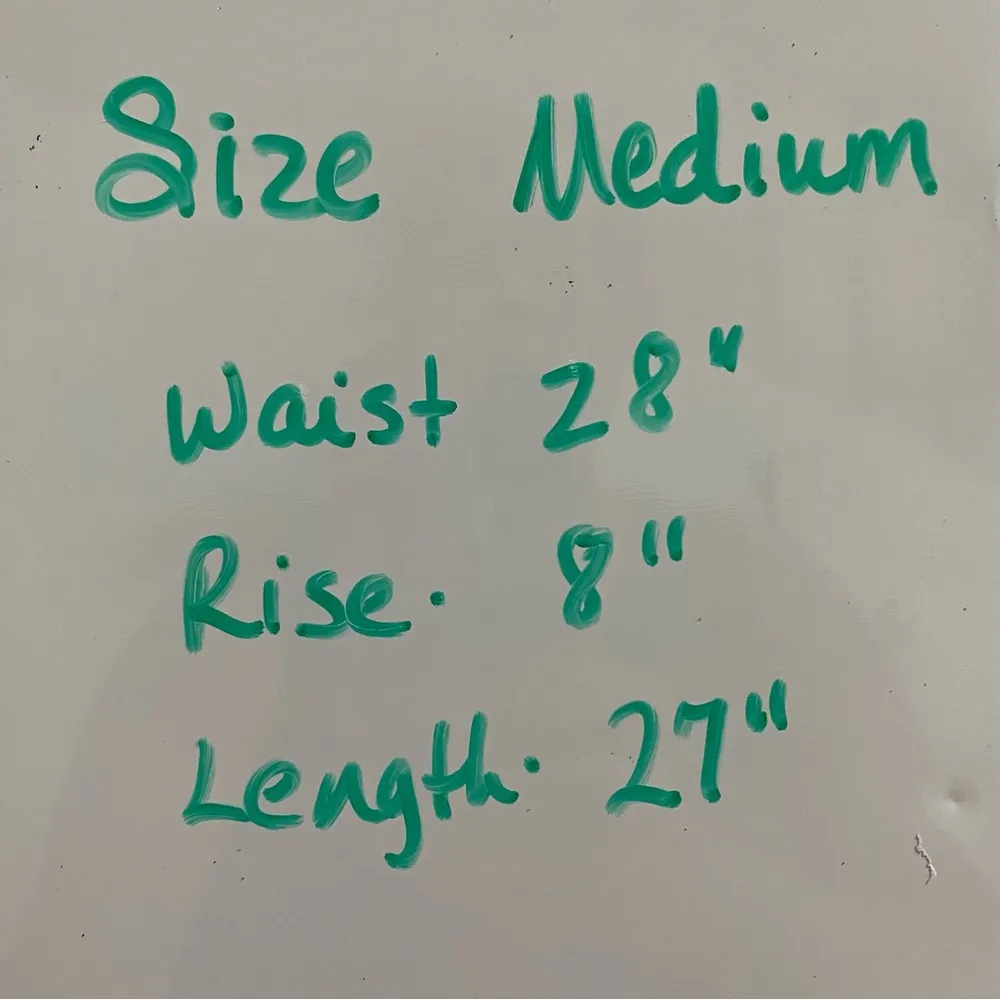 Size Medium
Waist 28"
Rise. 8"
Length. 27"